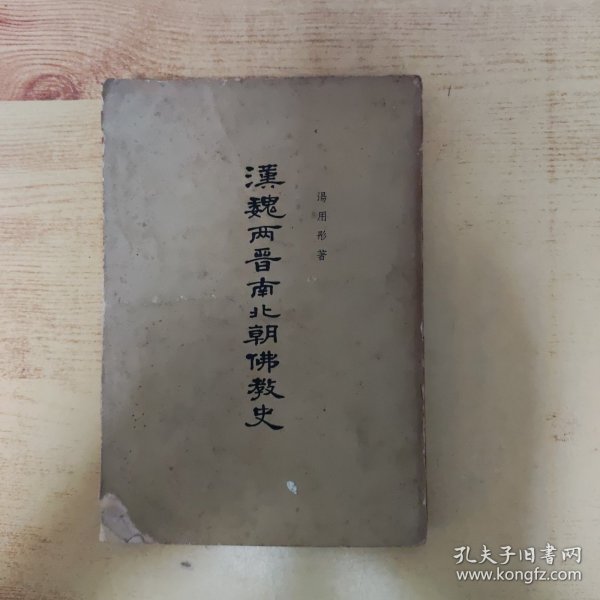 湯用彤著
漢魏两晋南北朝佛教史
孔夫子旧书网
www.kongfz.com